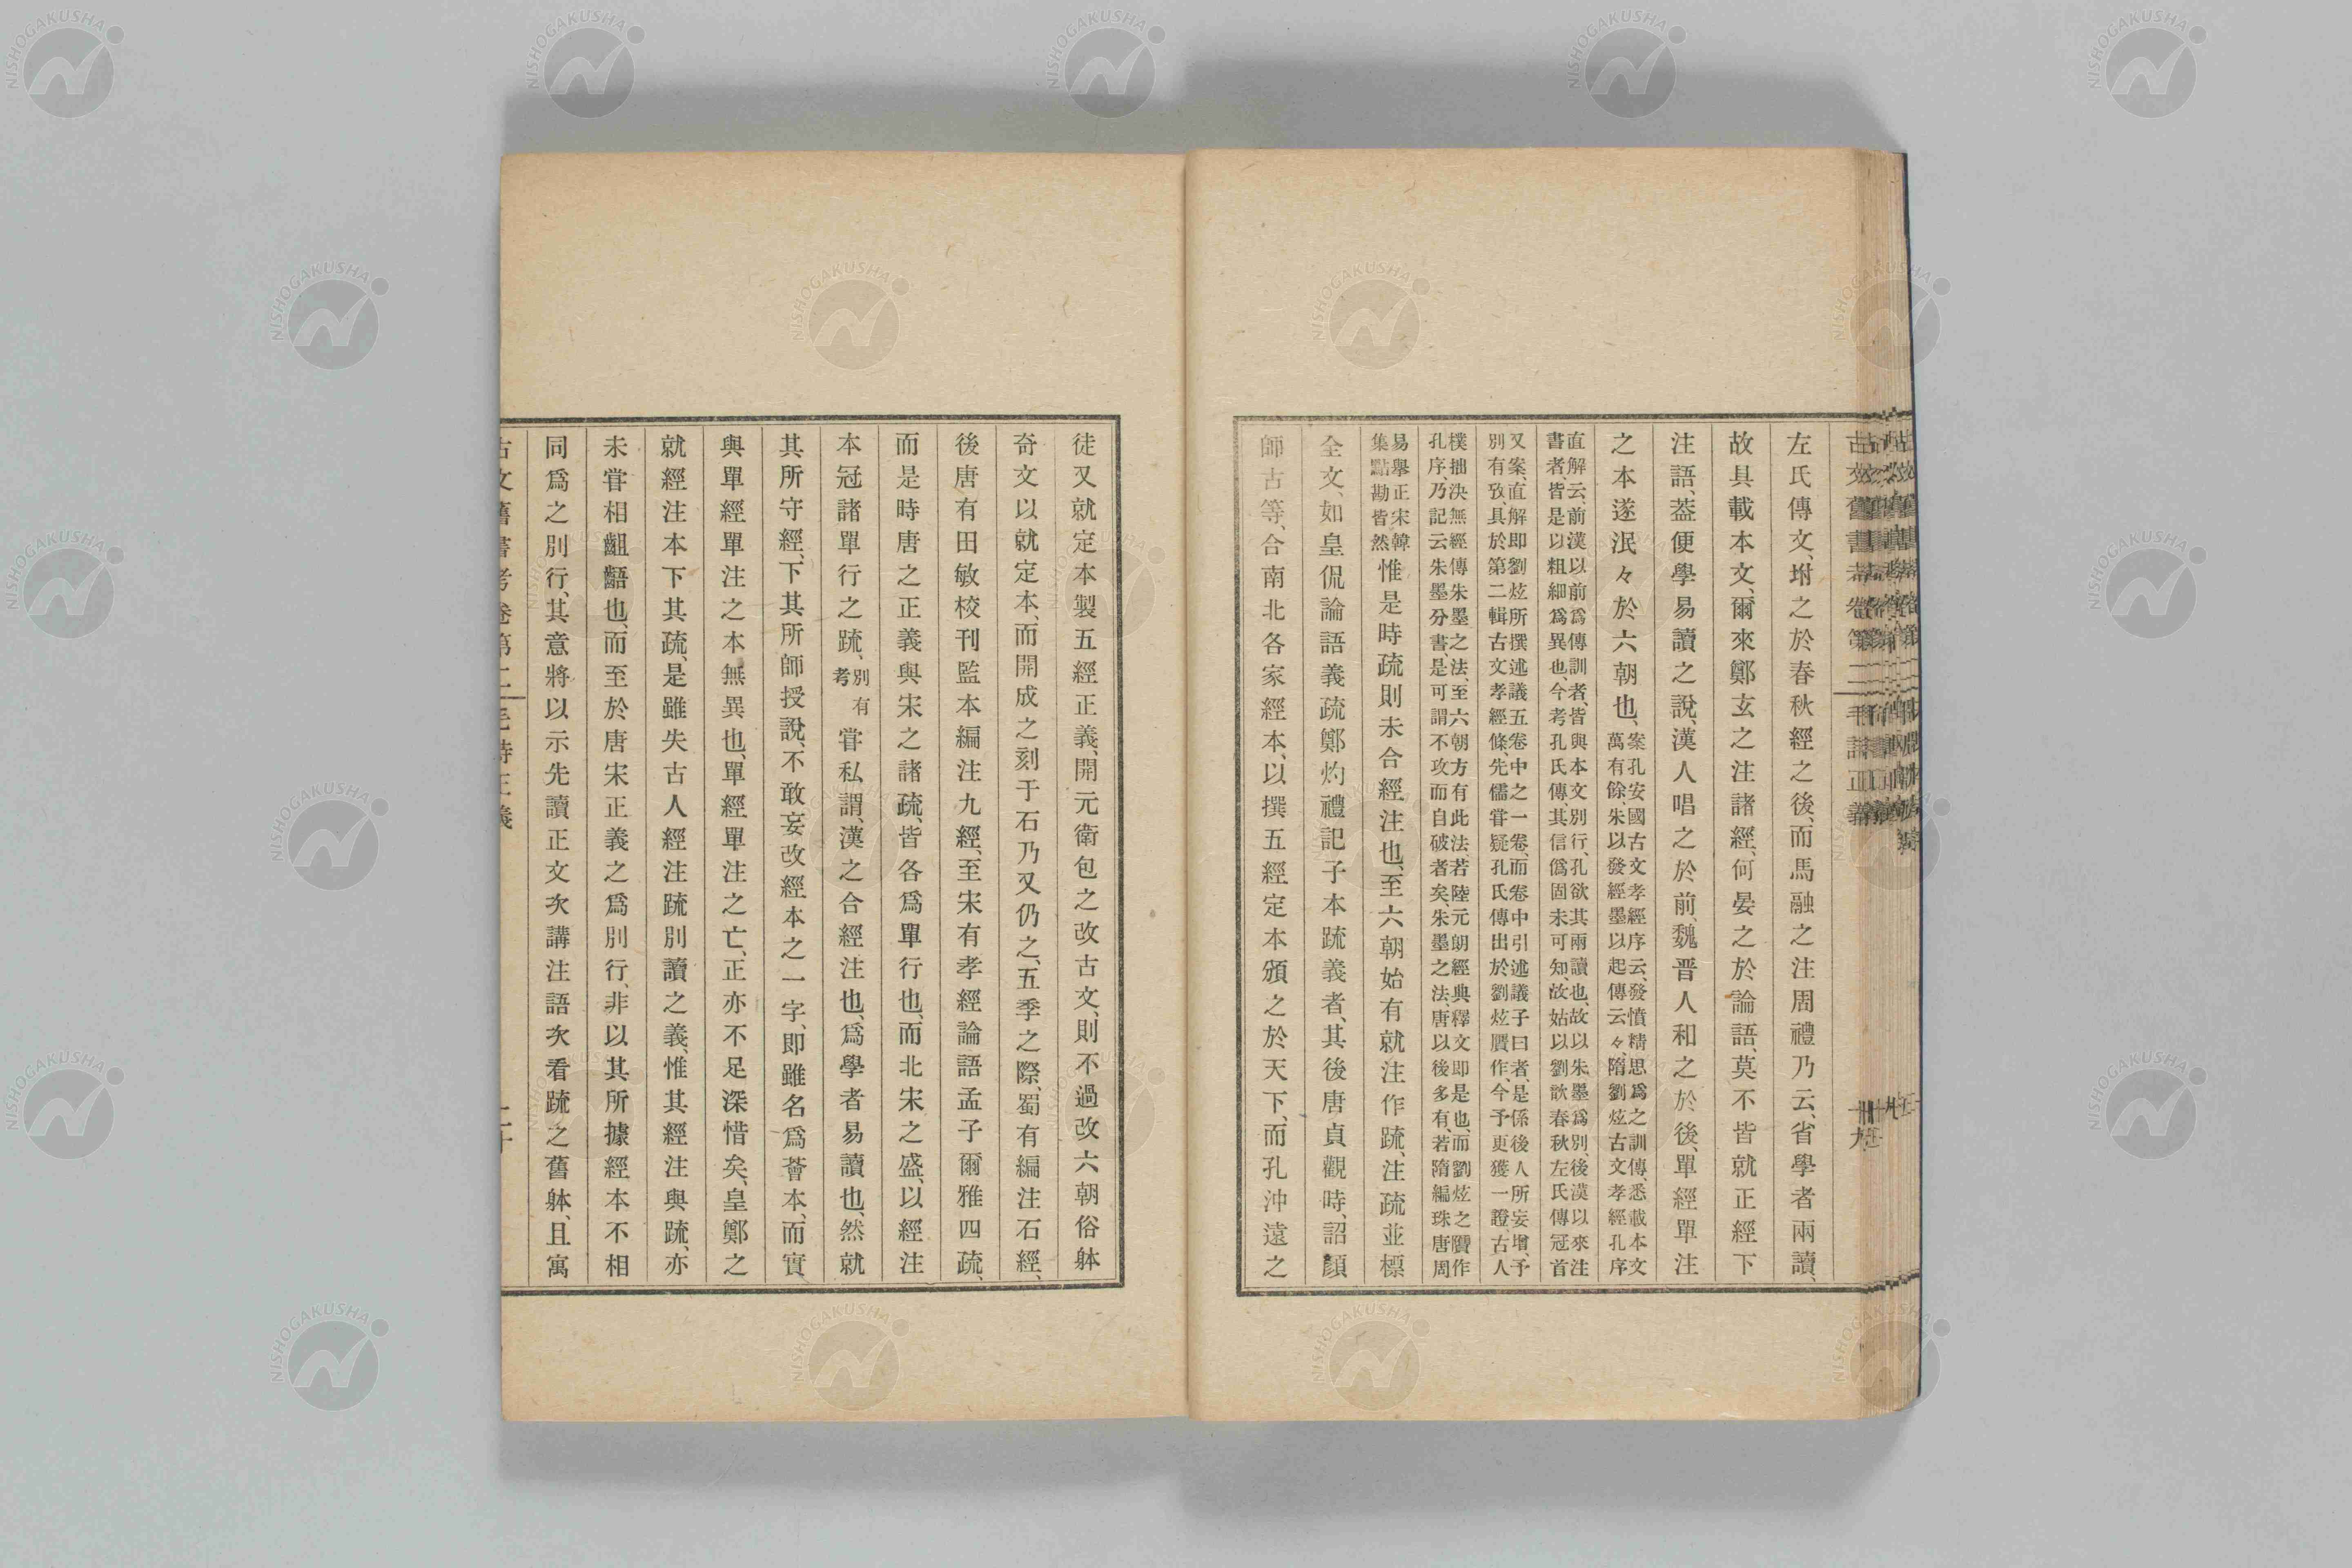 左氏傳文、坿之於春秋經之後、而馬融之注周禮乃云、省學者兩讀、
故具載本文、爾來鄭玄之注諸經、何晏之於論語、莫不皆就正經下
注語、葢便學易讀之說、漢人唱之於前、魏晋人和之於後、單經單注
之本遂泯々於六朝也、
案孔安國古文孝經序云、發憤精思爲之訓傳、悉載本文
萬有餘、朱以發經墨以起傳云々、隋劉炫古文孝經孔序
直解云、前漢以前爲傳訓者、皆與本文別行、孔欲其兩讀也、故以朱墨爲別、後漢以來注
書者、皆是以粗細爲異也、今考孔氏傳、其信僞固未可知、故姑以劉歆春秋左氏傳冠首
又案、直解即劉炫所撰述議五卷中之一卷、而卷中引述議子曰者、是係後人所妄增、予
別有攷、具於第二輯古文孝經條、先儒甞疑孔氏傳出於劉炫贋作、今予更獲一證、古人
樸拙決無經傳朱墨之法、至六朝方有此法若陸元朗經典釋文即是也、而劉炫之贋作
孔序、乃記云朱墨分書、是可謂不攻而自破者矣、朱墨之法、唐以後多有、若隋編珠唐周
易擧正宋韓
集點勘皆然
惟是時疏則未合經注也、至六朝始有就注作䟽、注疏並標
全文、如皇侃論語義疏鄭灼禮記子本䟽義者、其後唐貞觀時、詔顏
師古等、合南北各家經本、以撰五經定本頒之於天下、而孔沖遠之
徒又就定本製五經正義、開元衛包之改古文、則不過改六朝俗躰
奇文以就定本、而開成之刻于石乃又仍之、五季之際、蜀有編注石經、
後唐有田敏校刊監本編注九經、至宋有孝經論語孟子爾雅四疏、
而是時唐之正義與宋之諸疏、皆各爲單行也、而北宋之盛、以經注
本冠諸單行之䟽、
別有
考
甞私謂、漢之合經注也、爲學者易讀也、然就
其所守經、下其所師授說、不敢妄改經本之一字、即雖名爲薈本、而實
與單經單注之本無異也、單經單注之亡、正亦不足深惜矣、皇鄭之
就經注本下其疏、是雖失古人經注䟽別讀之義、惟其經注與䟽、亦
未甞相齟齬也、而至於唐宋正義之爲別行、非以其所據經本不相
同爲之別行、其意將以示先讀正文次講注語次看䟽之舊躰、且寓